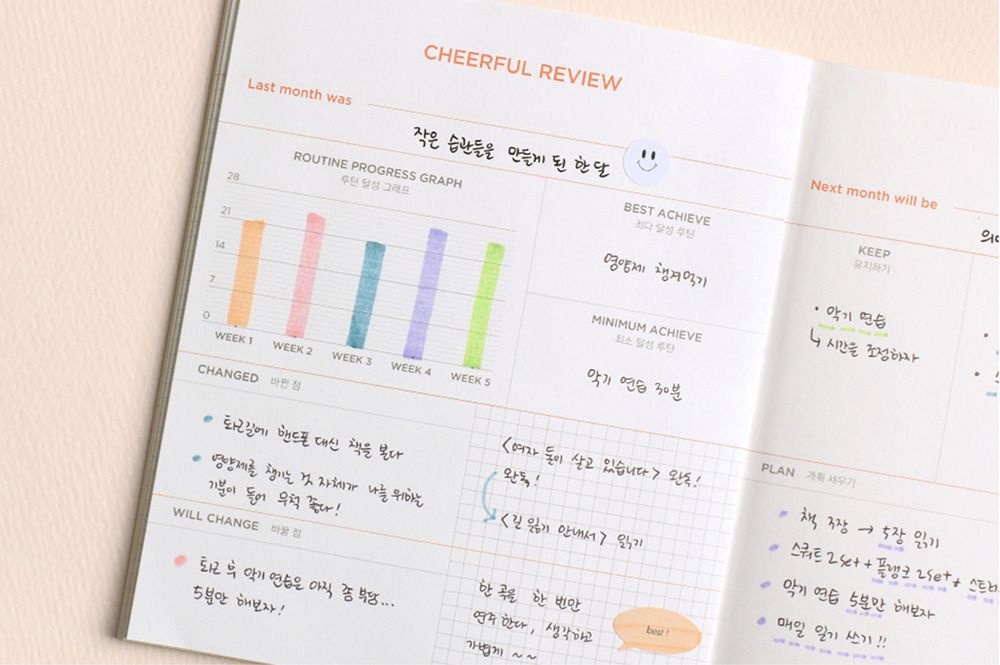 CHEERFUL REVIEW
Last month was
작은 습관들을 만들게 된 한 달
ROUTINE PROGRESS GRAPH
루틴 달성 그래프
28
21
14
7
0
WEEK 1
WEEK 2
WEEK 3
WEEK 4
WEEK 5
BEST ACHIEVE
최다 달성 루틴
영양제 챙겨먹기
MINIMUM ACHIEVE
최소 달성 루틴
악기 연습 30분
CHANGED 바뀐 점
퇴근길에 핸드폰 대신 책을 본다
영양제를 챙기는 것 자체가 나를 위하는
기분이 들어 무척 좋다!
<여자 둘이 살고 있습니다> 완독!
완독!
<길 잃기 안내서> 읽기
WILL CHANGE 바꿀 점
퇴근 후 악기 연습은 아직 좀 부담...
5분만 해보자!
한 곡을 한 번만
연주한다, 생각하고
가볍게 ~ ~
best!
Next month will be
KEEP
유지하기
• 악기 연습
↳ 시간을 조정하자
PLAN 계획 세우기
책 3장 → 5장 읽기
스쿼트 2set + 플랭크 2set +
악기 연습 5분만 해보자
매일 일기 쓰기!!